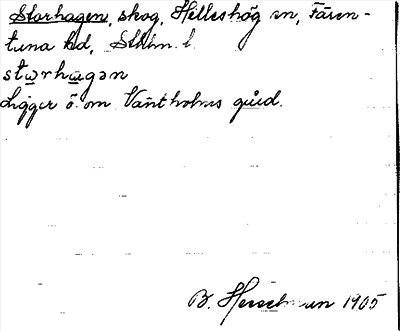 Storhagen, skog, Hilleshög sn, Fären-
tuna hd, Sthlm. l.
stωrhαgən
Ligger ö. om Väntholms gård.
B. 1905